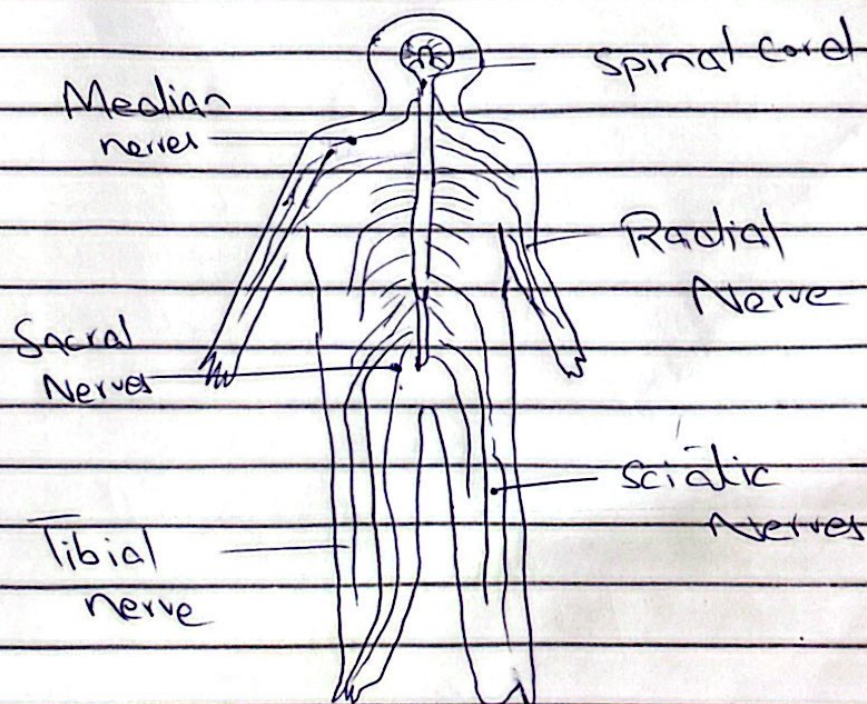 Spinal Cord
Median
nerves
Radial
Nerve
Sacral
Nerves
Sciatic
Nerves
Tibial
nerve